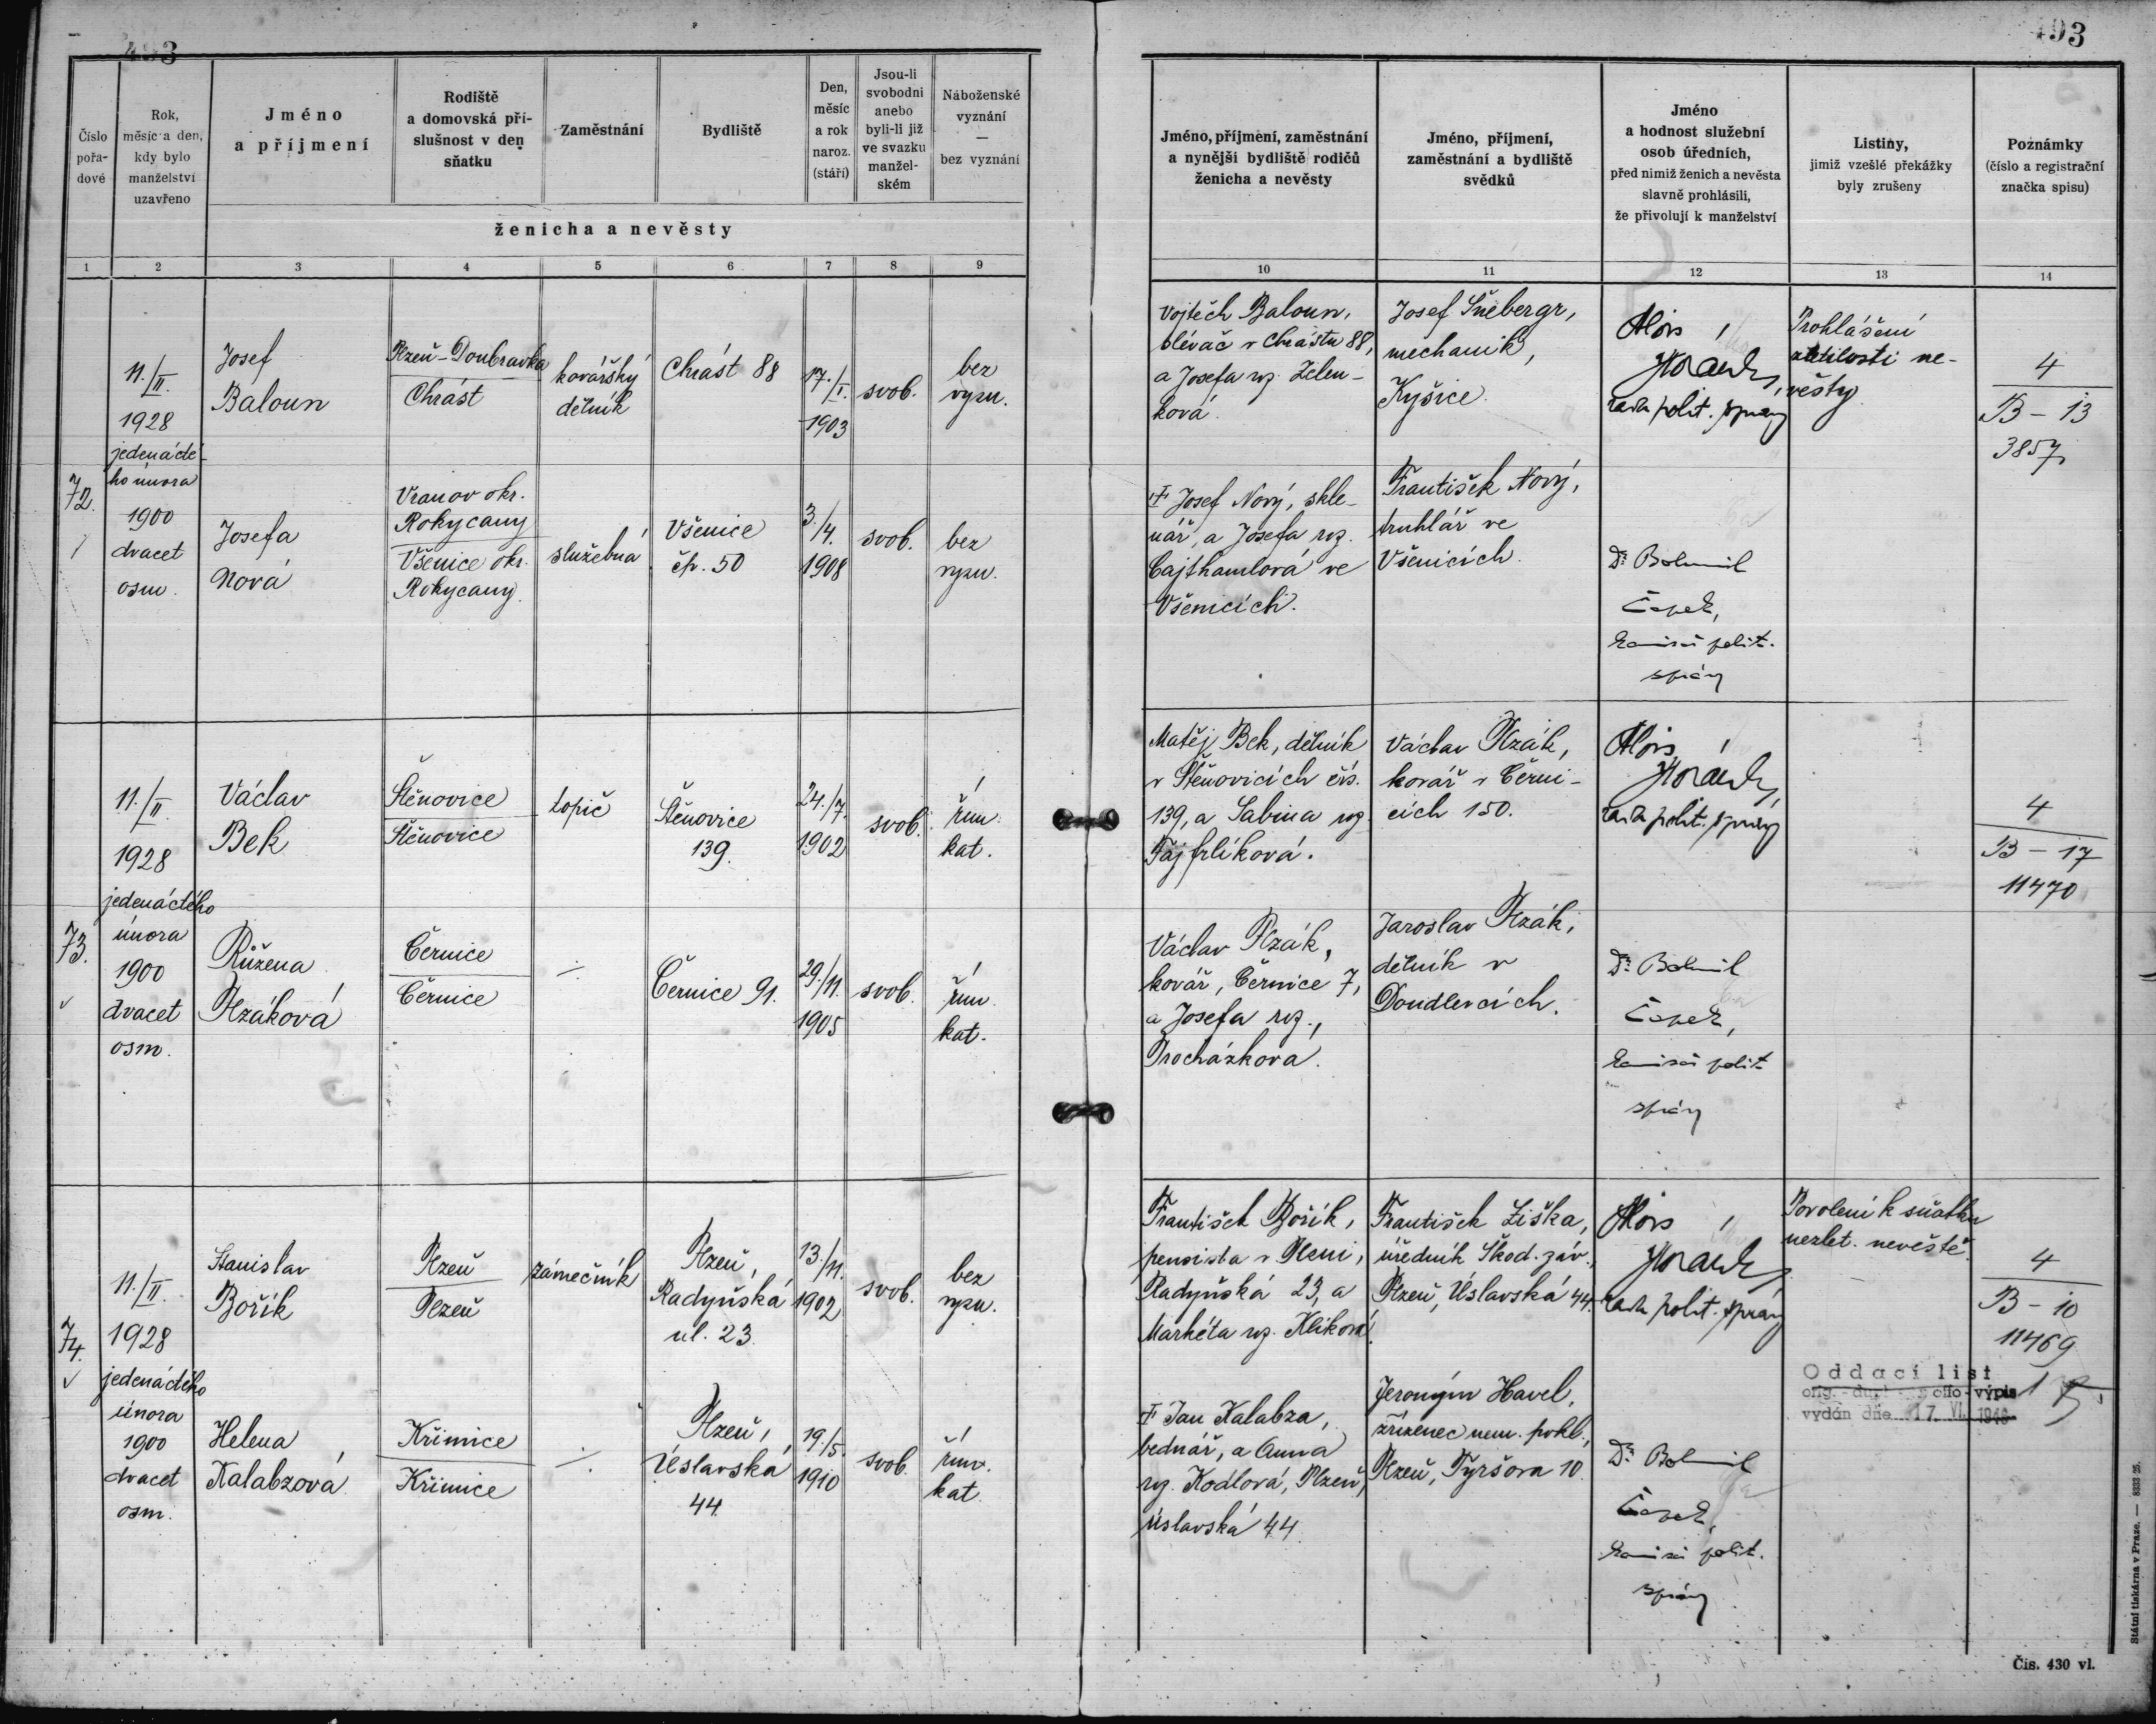 493
Číslo pořa- dové
Rok, měsíc a den, kdy bylo manželství uzavřeno
Jméno a příjmení
Rodiště a domovská pří- slušnost v den sňatku
Zaměstnání
Bydliště
Den, měsíc a rok naroz. (stáří)
Jsou-li svobodni anebo byli-li již ve svazku manžel- ském
Náboženské vyznání — bez vyznání
ženicha a nevěsty
1 2 3 4 5 6 7 8 9
72.
11./II.
1928
jedenácté-
ho února
1900
dvacet
osm.
Josef
Baloun
Plzeň-Doubravka
Chrást
kovářský
dělník
Chrást 88
17./I.
1903
svob.
bez
vyzn.
Josefa
Nová
Vranov okr.
Rokycany
Všenice okr.
Rokycany
služebná
Všenice
čp. 50
3./4.
1908
svob.
bez
vyzn.
73.
11./II.
1928
jedenáctého
února
1900
dvacet
osm.
Václav
Bek
Štěnovice
Štěnovice
topič
Štěnovice
139.
24./7.
1902
svob.
řím.
kat.
Růžena
Plzáková
Černice
Černice
Černice 91.
29./11.
1905
svob.
řím.
kat.
74.
11./II.
1928
jedenáctého
února
1900
dvacet
osm.
Stanislav
Bořík
Plzeň
Plzeň
zámečník
Plzeň,
Radyňská
ul. 23.
13./11.
1902
svob.
bez
vyzn.
Helena
Kalabzová
Křimice
Křimice
Plzeň,
Úslavská
44.
19./5.
1910
svob.
řím.
kat.
493
Jméno, příjmení, zaměstnání a nynější bydliště rodičů ženicha a nevěsty
Jméno, příjmení, zaměstnání a bydliště svědků
Jméno a hodnost služební osob úředních, před nimiž ženich a nevěsta slavně prohlásili, že přivolují k manželství
Listiny, jimiž vzešlé překážky byly zrušeny
Poznámky (číslo a registrační značka spisu)
10 11 12 13 14
Vojtěch Baloun,
slévač v Chrástu 88,
a Josefa roz. Zelen-
ková.
Josef Šnebergr,
mechanik,
Kyšice.
Alois
Horák,
rada polit. správy
Prohlášení
zletilosti ne-
věsty
4
B - 13
3857
Josef Nový, skle-
nář, a Josefa roz.
Cajthamlová ve
Všenicích.
František Nový,
truhlář ve
Všenicích.
Dr. Bohumil
Čapek,
komisař polit.
správy
Matěj Bek, dělník
v Štěnovicích čís.
139, a Sabina roz.
Fajfrlíková.
Václav Plzák,
kovář v Černi-
cích 150.
Alois
Horák,
rada polit. správy
4
B - 17
11470
Václav Plzák,
kovář, Černice 7,
a Josefa roz.,
Procházkova.
Jaroslav Plzák,
dělník v
Doudlevcích.
Dr. Bohumil
Čapek,
komisař polit.
správy
František Bořík,
pensista v Plzni,
Radyňská 23, a
Markéta roz. Kliková.
František Liška,
úředník Škod. záv.,
Plzeň, Úslavská 44.
Alois
Horák,
rada polit. správy
Povolení k sňatku
nezlet. nevěstě.
4
B - 10
11469
Jan Kalabza,
bednář, a Anna
roz. Kodlová, Plzeň,
Úslavská 44
Jeroným Havel,
zřízenec nem. pokl.,
Plzeň, Tyršova 10.
Dr. Bohumil
Čapek,
komisař polit.
správy
Oddací list
výpis
vydán dne 17. VI.
Státní tiskárna v Praze. — 8333 26.
Čís. 430 vl.